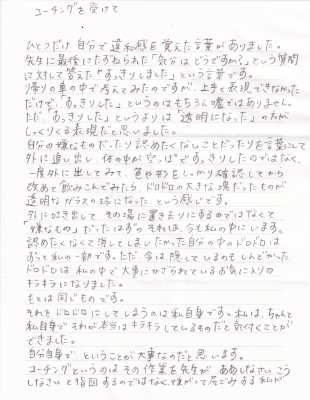 コーチングを受けて
ひとつだけ自分で違和感を覚えた言葉がありました。
先生に最後にたずねられた「気分はどうですか?」という質問
に対して答えた「すっきりしました」という言葉です。
帰りの車の中で考えてみたのですが、上手く表現できなかった
だけで、「すっきりした」というのはもちろん嘘ではありません。
ただ、「すっきりした」というよりは「透明になった」の方が
しっくりくる表現だと思いました。
自分の嫌なものだったり認めたくないことだったりを言葉にして
外に追い出し、体の中が空っぽですっきりしたのではなく、
一度外に出してみて、色や形をしっかり確認してから
改めて飲みこんでみたら、ドロドロの大きな塊だったものが
透明なガラスの球になった、という感じです。
外に吐き出して その場に置き去りにするのではなくて
「嫌なもの」だったはずのそれは、今も私の中にいます。
認めたくなくて消してしまいたかった自分の中のドロドロは
ずっと私の一部です。ただ今は、隠しているのもしんどかった
ドロドロは 私の中で大事にかざられているお気に入りの
キラキラになりました。
もとは同じものです。
それをドロドロにしてしまうのは私自身です。私は、ちゃんと
私自身でそれが本当はキラキラしているものだと気付くことが
できました。
自分自身で、ということが大事なのだと思います。
コーチングというのは その作業を先生が、ああしなさい こう
しなさい と指図するのではなく、嫌がって尻ごみする私が